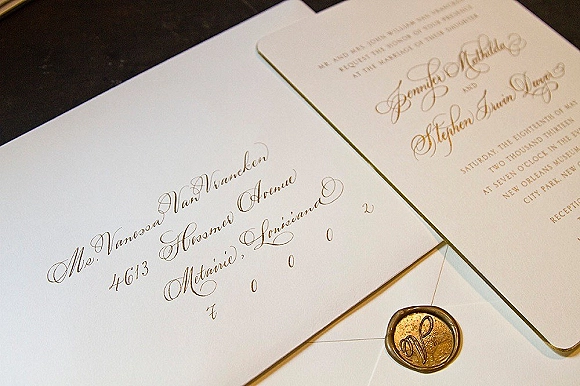 Ms. Vanessa Van Vrancken
4613 Hessmer Avenue
Metairie, Louisiana
7 0 0 0 2
MR. AND MRS. JOHN WILLIAM VAN
REQUEST THE HONOR OF YOUR PRESENCE
AT THE MARRIAGE OF THEIR DAUGHTER
Jennifer Mathilda
AND
Stephen Irwin
SATURDAY, THE EIGHTEENTH OF MAY
TWO THOUSAND THIRTEEN
AT SEVEN O'CLOCK IN THE
NEW ORLEANS MUSEUM
CITY PARK, NEW
RECEPTION